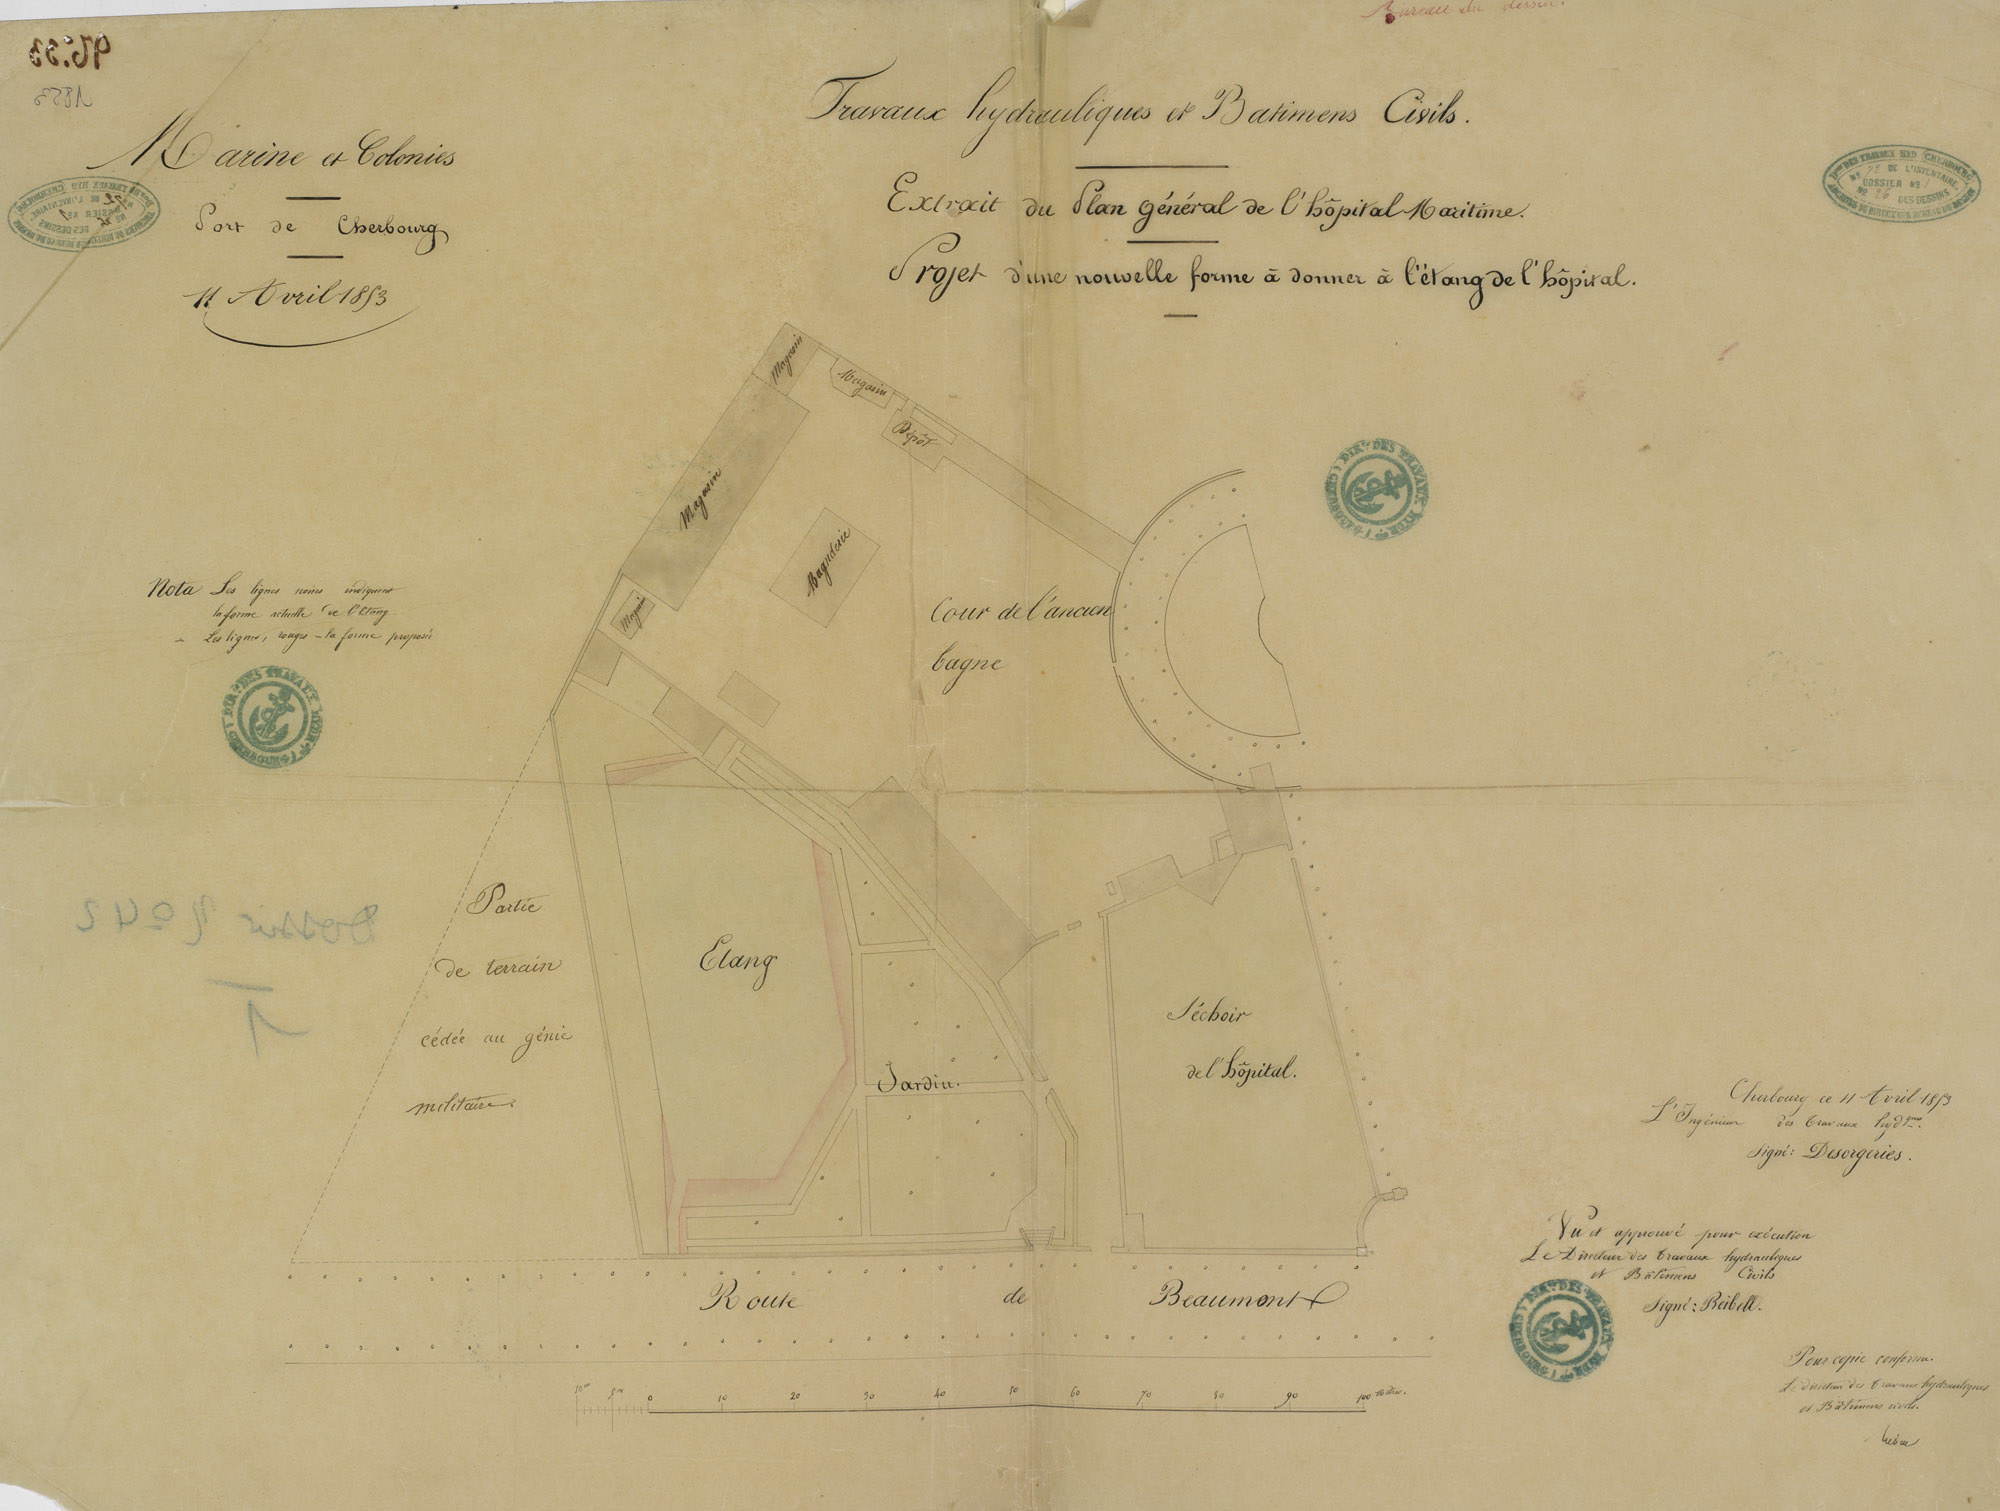 Bureau du dessin.
1853
Marine et Colonies
Port de Cherbourg
11 Avril 1853
Travaux hydrauliques et Batimens Civils.
Extrait du Plan général de l'hôpital Maritime.
Projet d'une nouvelle forme à donner à l'étang de l'hôpital.
Nota Les lignes noires indiquent
la forme actuelle de l'Etang
- Les lignes, rouges - la forme proposée
Magasin
Magasin
Dépôt
Magasin
Magasin
Cour de l'ancien
bagne
Partie
de terrain
cédée au génie
militaire.
Etang
Jardin.
Séchoir
de l'hôpital.
Dossier
1
Route de Beaumont
10 0 10 20 30 40 50 60 70 80 90 100 Mètres.
Cherbourg ce 11 Avril 1853
L'Ingénieur des travaux hydques.
Signé: Desorgeries.
Vu et approuvé pour exécution
Le Directeur des travaux hydrauliques
et Bâtimens Civils
Signé: Reibell.
Pour copie conforme.
Le directeur des travaux hydrauliques
et Bâtimens civils.
DIRon DES TRAVAUX HYDR. CHERBOURG
DE L'INVENTAIRE
DOSSIER No 1
DES DESSINS